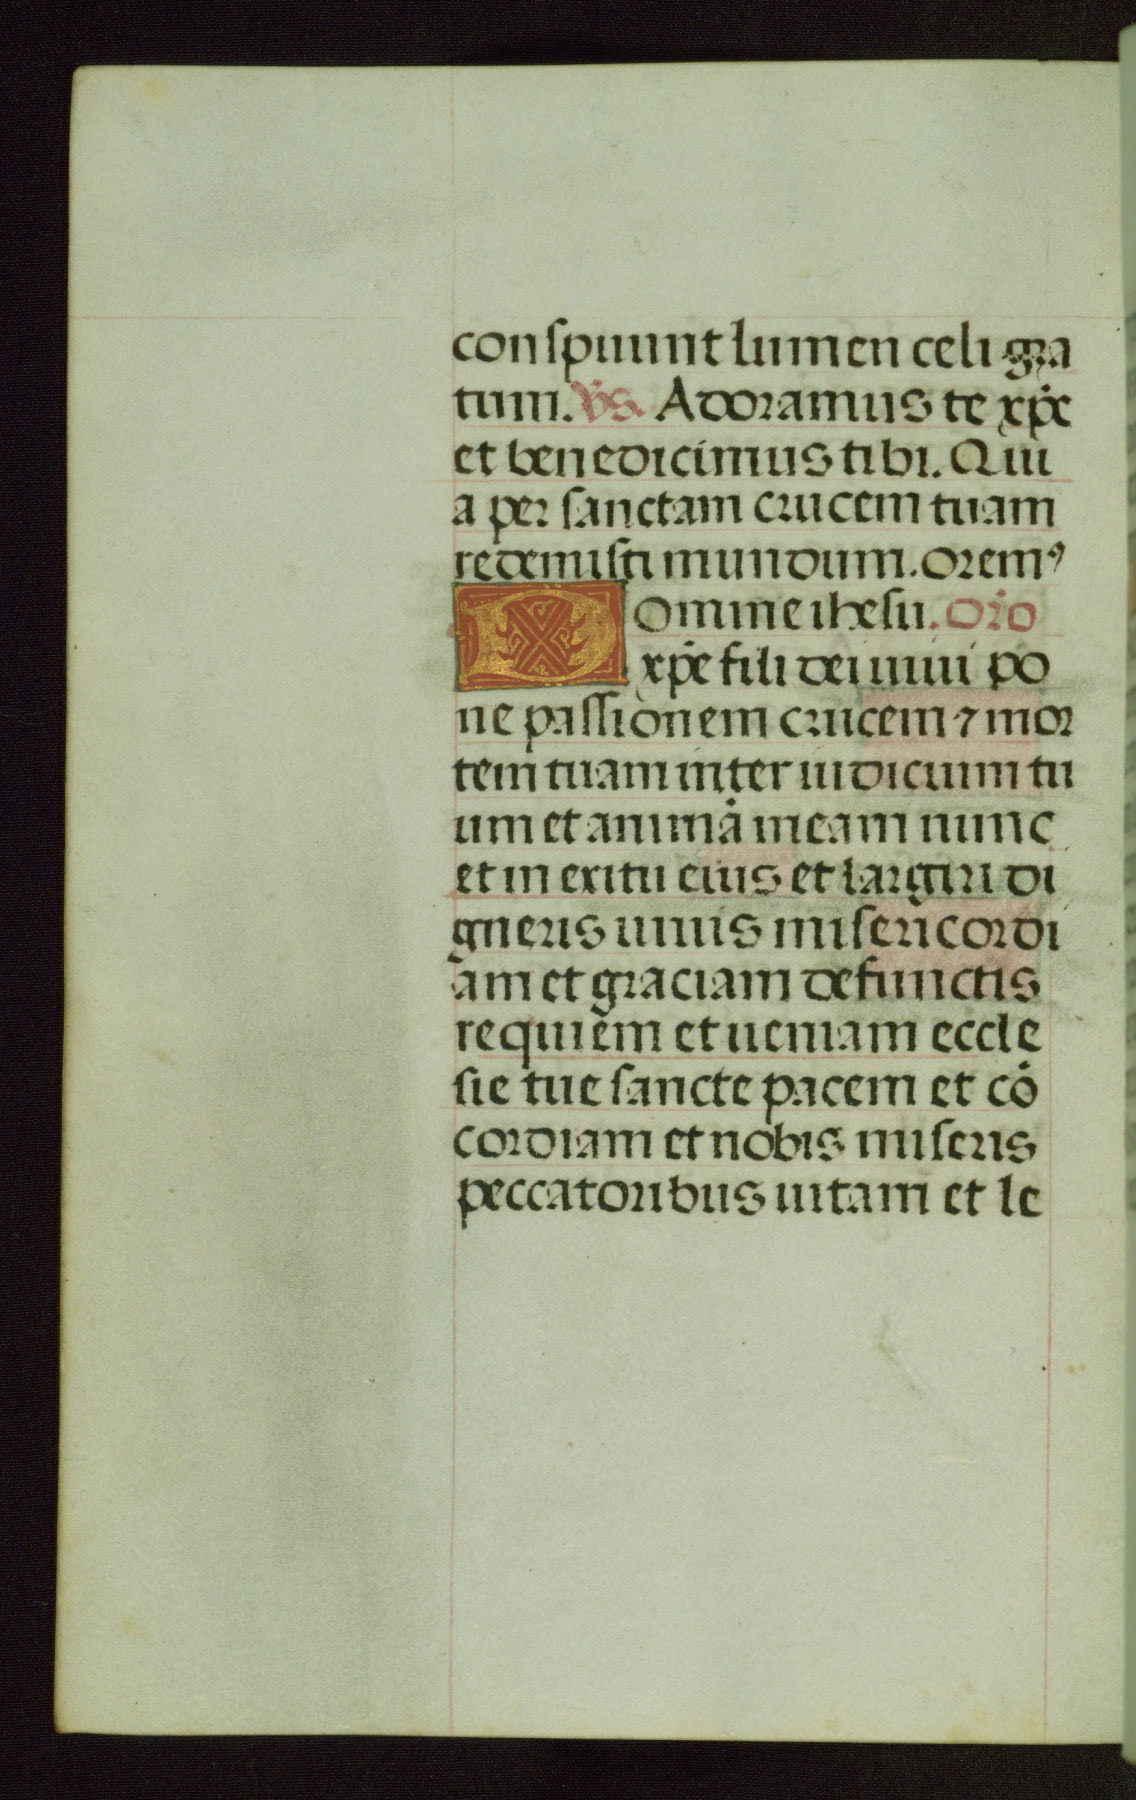 conspuunt lumen celi gra
tum. Vs. Adoramus te xp̄e
et benedicimus tibi. Qui
a per sanctam crucem tuam
redemisti mundum. Oremꝰ
Domine ihesu. Orō
xp̄e fili dei uiui po
ne passionem crucem ⁊ mor
tem tuam inter iudicium tu
um et animā meam nunc
et in exitu eius et largiri di
gneris uiuis misericordi
am et graciam defunctis
requiem et ueniam eccle
sie tue sancte pacem et cō
cordiam et nobis miseris
peccatoribus uitam et le